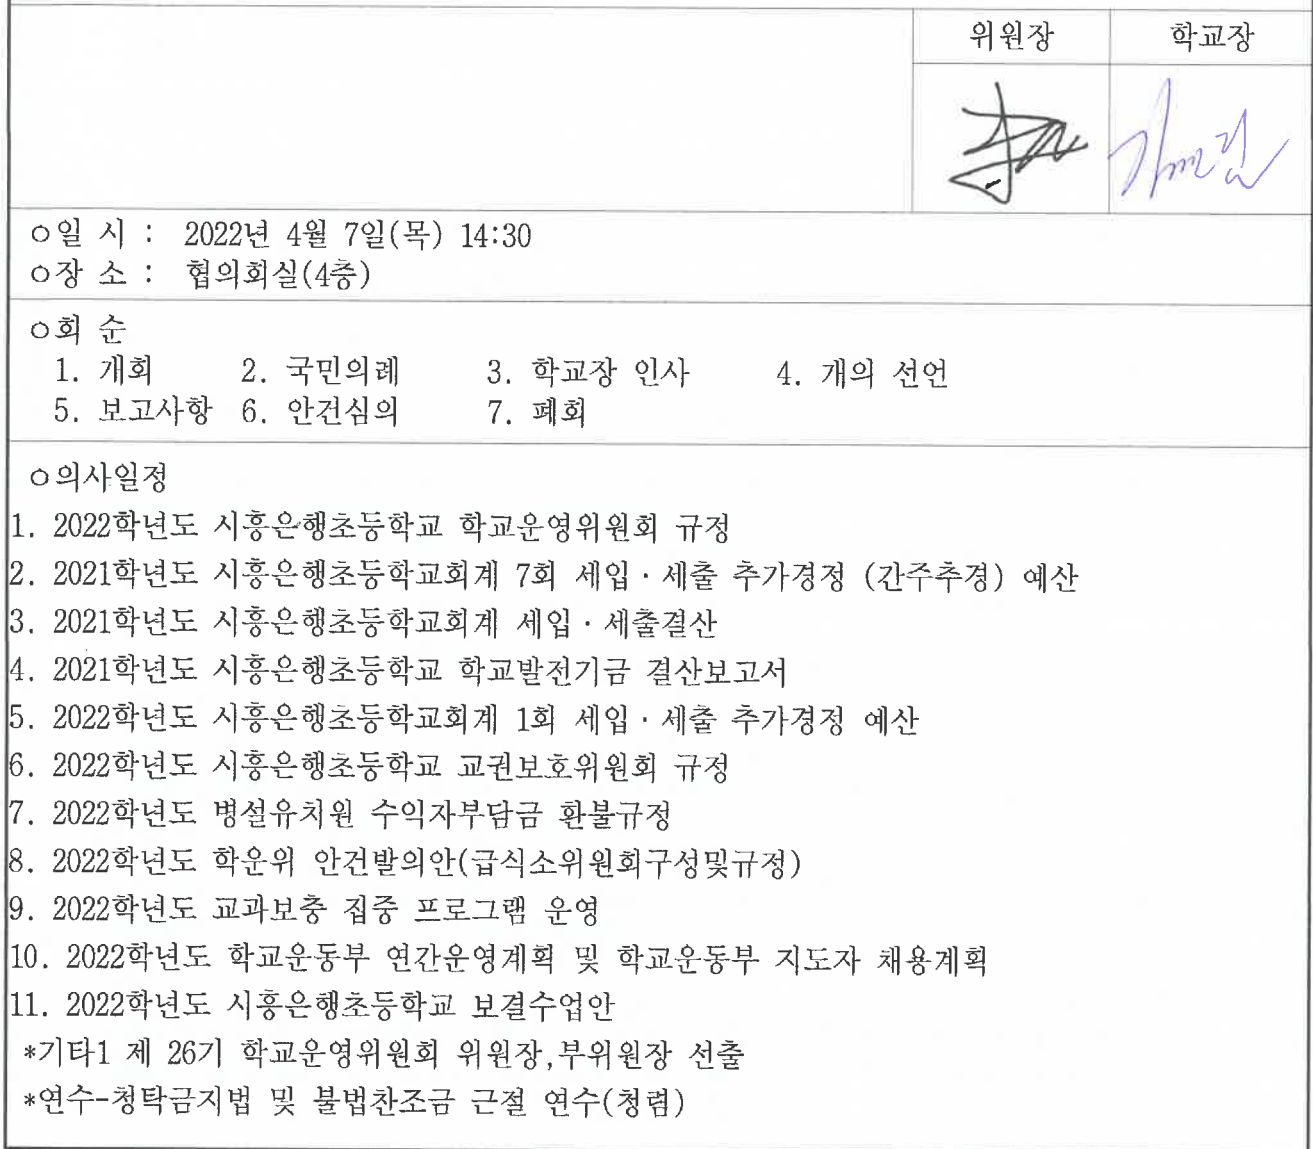 위원장 학교장
○일 시 : 2022년 4월 7일(목) 14:30
○장 소 : 협의회실(4층)
○회 순
1. 개회 2. 국민의례 3. 학교장 인사 4. 개의 선언
5. 보고사항 6. 안건심의 7. 폐회
○의사일정
1. 2022학년도 시흥은행초등학교 학교운영위원회 규정
2. 2021학년도 시흥은행초등학교회계 7회 세입·세출 추가경정 (간주추경) 예산
3. 2021학년도 시흥은행초등학교회계 세입·세출결산
4. 2021학년도 시흥은행초등학교 학교발전기금 결산보고서
5. 2022학년도 시흥은행초등학교회계 1회 세입·세출 추가경정 예산
6. 2022학년도 시흥은행초등학교 교권보호위원회 규정
7. 2022학년도 병설유치원 수익자부담금 환불규정
8. 2022학년도 학운위 안건발의안(급식소위원회구성및규정)
9. 2022학년도 교과보충 집중 프로그램 운영
10. 2022학년도 학교운동부 연간운영계획 및 학교운동부 지도자 채용계획
11. 2022학년도 시흥은행초등학교 보결수업안
*기타1 제 26기 학교운영위원회 위원장,부위원장 선출
*연수-청탁금지법 및 불법찬조금 근절 연수(청렴)